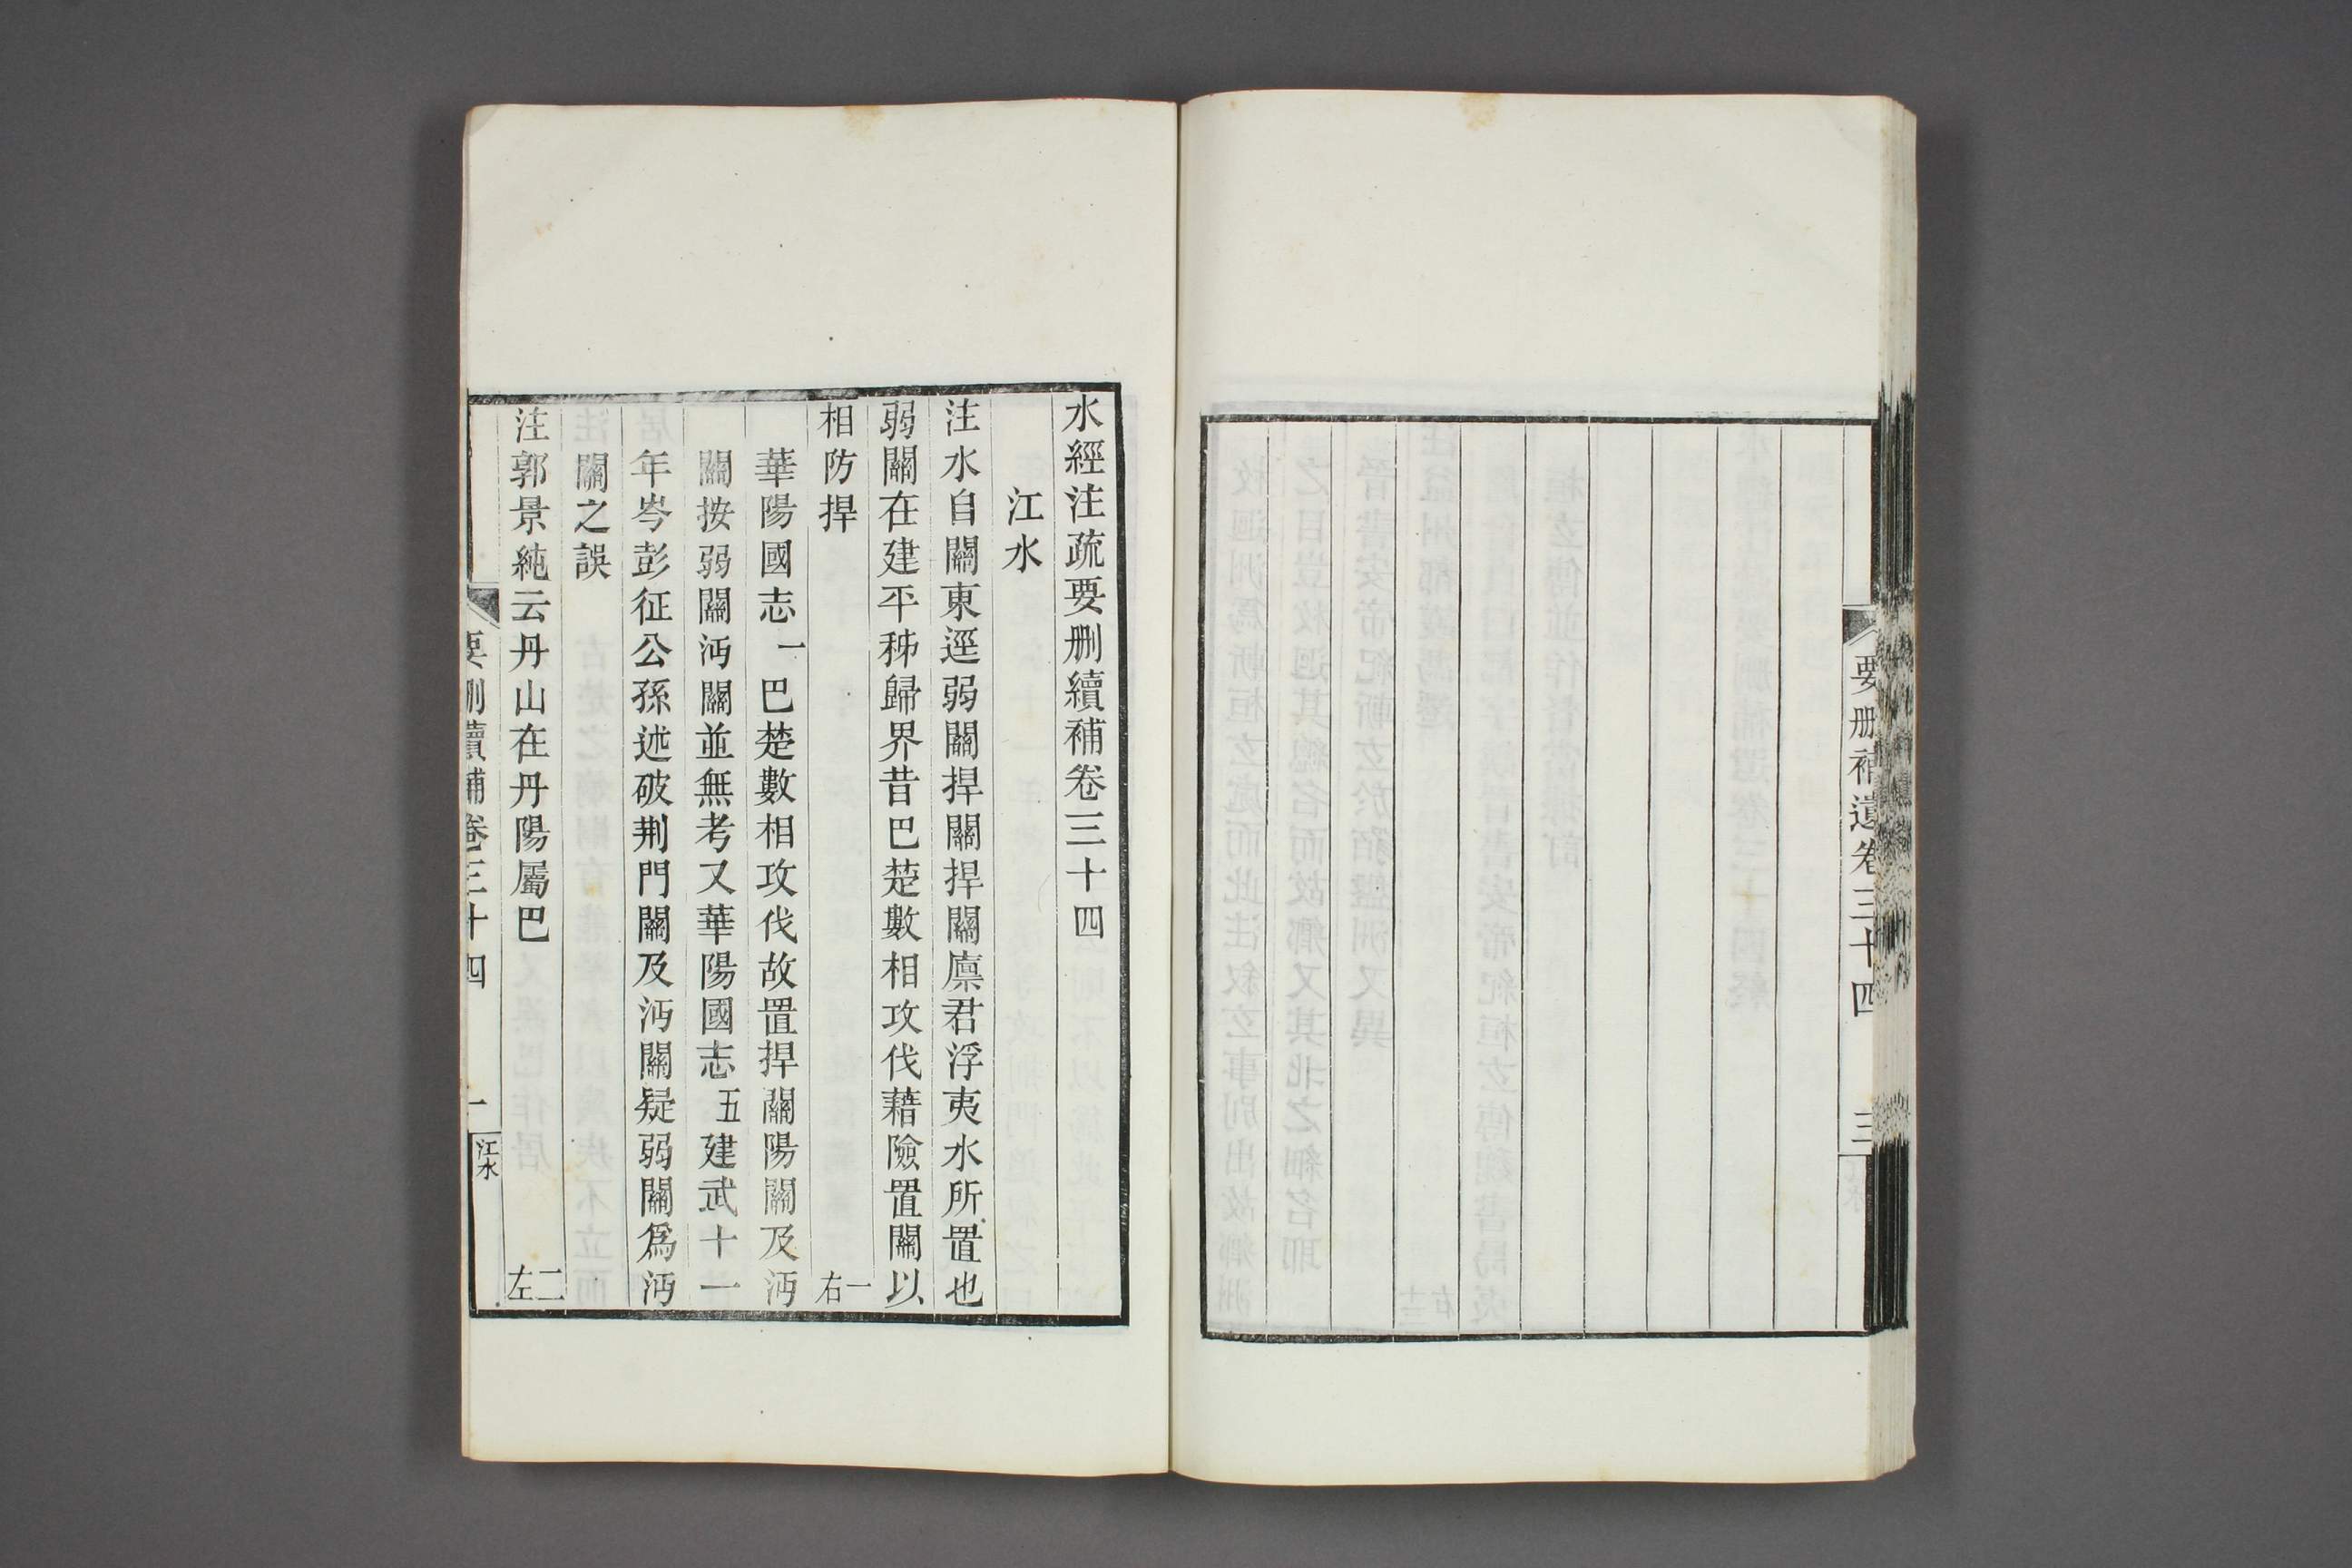 要刪補遺卷三十四
三
水經注疏要刪續補卷三十四
江水
注水自關東逕弱關捍關捍關廩君浮夷水所置也
弱關在建平秭歸界昔巴楚數相攻伐藉險置關以
相防捍 一右
華陽國志一巴楚數相攻伐故置捍關陽關及沔
關按弱關沔關並無考又華陽國志五建武十一
年岑彭征公孫述破荆門關及沔關疑弱關爲沔
關之誤
注郭景純云丹山在丹陽屬巴 二左
要刪續補卷三十四
一
江水